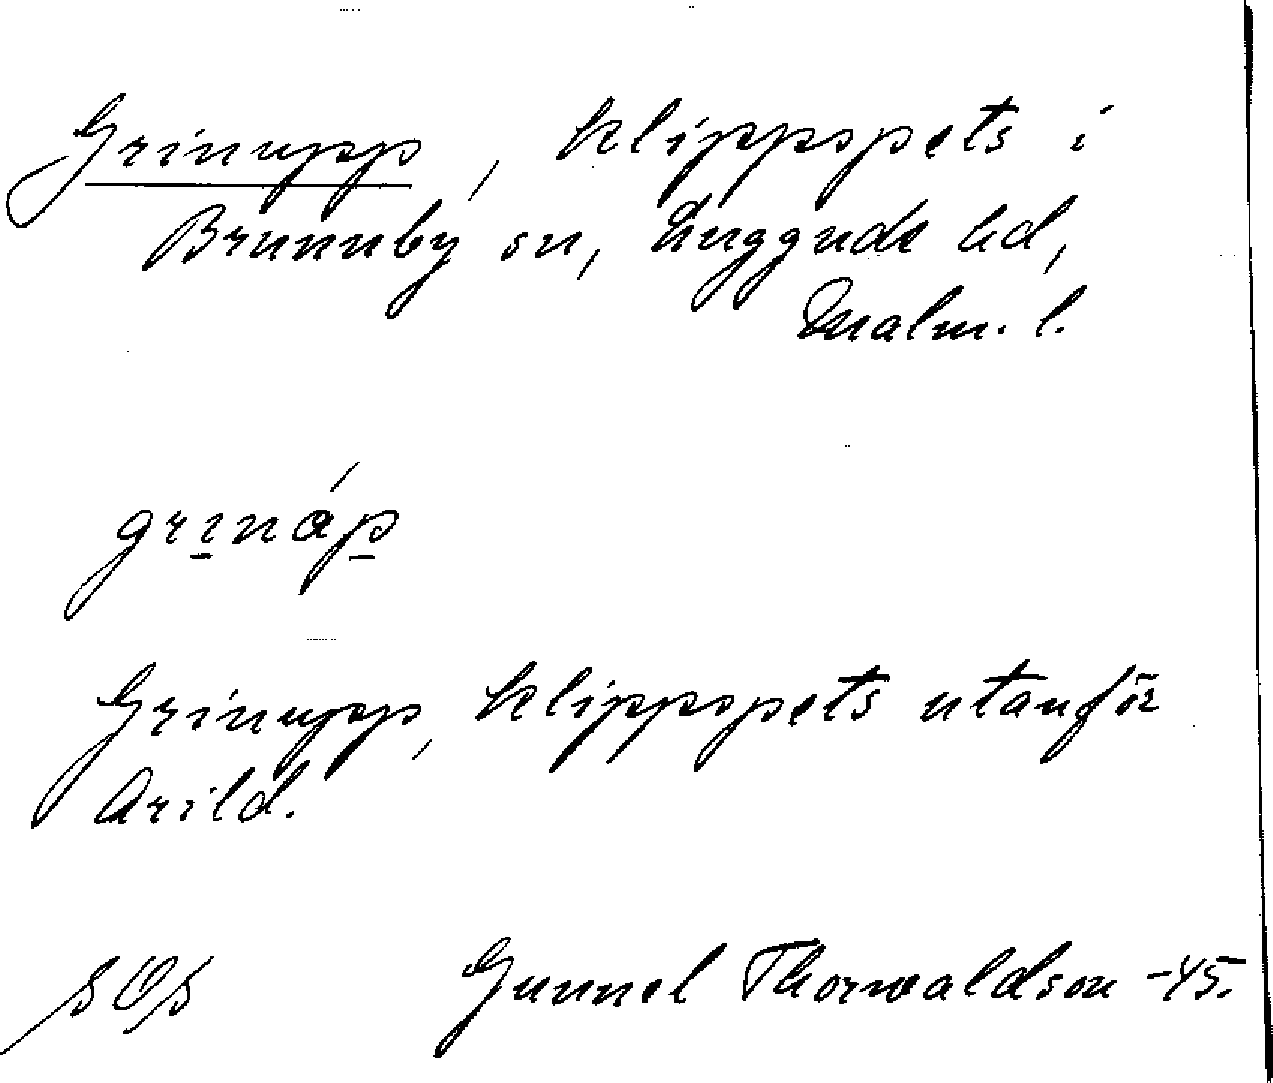 Grinupp, klippspets i
Brunnby sn, Luggude hd,
Malm. l.
grináp
Grinupp, klippspets utanför
Arild.
SOS Gunnel Thorwaldson -45.